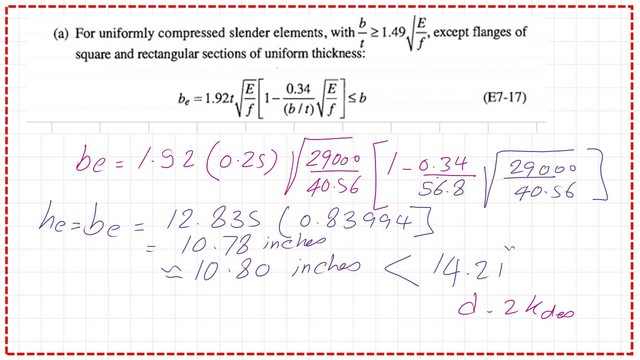 (a) For uniformly compressed slender elements, with b/t ≥ 1.49√(E/f), except flanges of
square and rectangular sections of uniform thickness:
be = 1.92t√(E/f)[1 − 0.34/(b/t) √(E/f)] ≤ b (E7-17)
be = 1.92 (0.25) √(29000/40.56) [1 − 0.34/56.8 √(29000/40.56)]
he = be = 12.835 (0.83994]
= 10.78 inches
≈ 10.80 inches < 14.2 i"
d - 2kdes